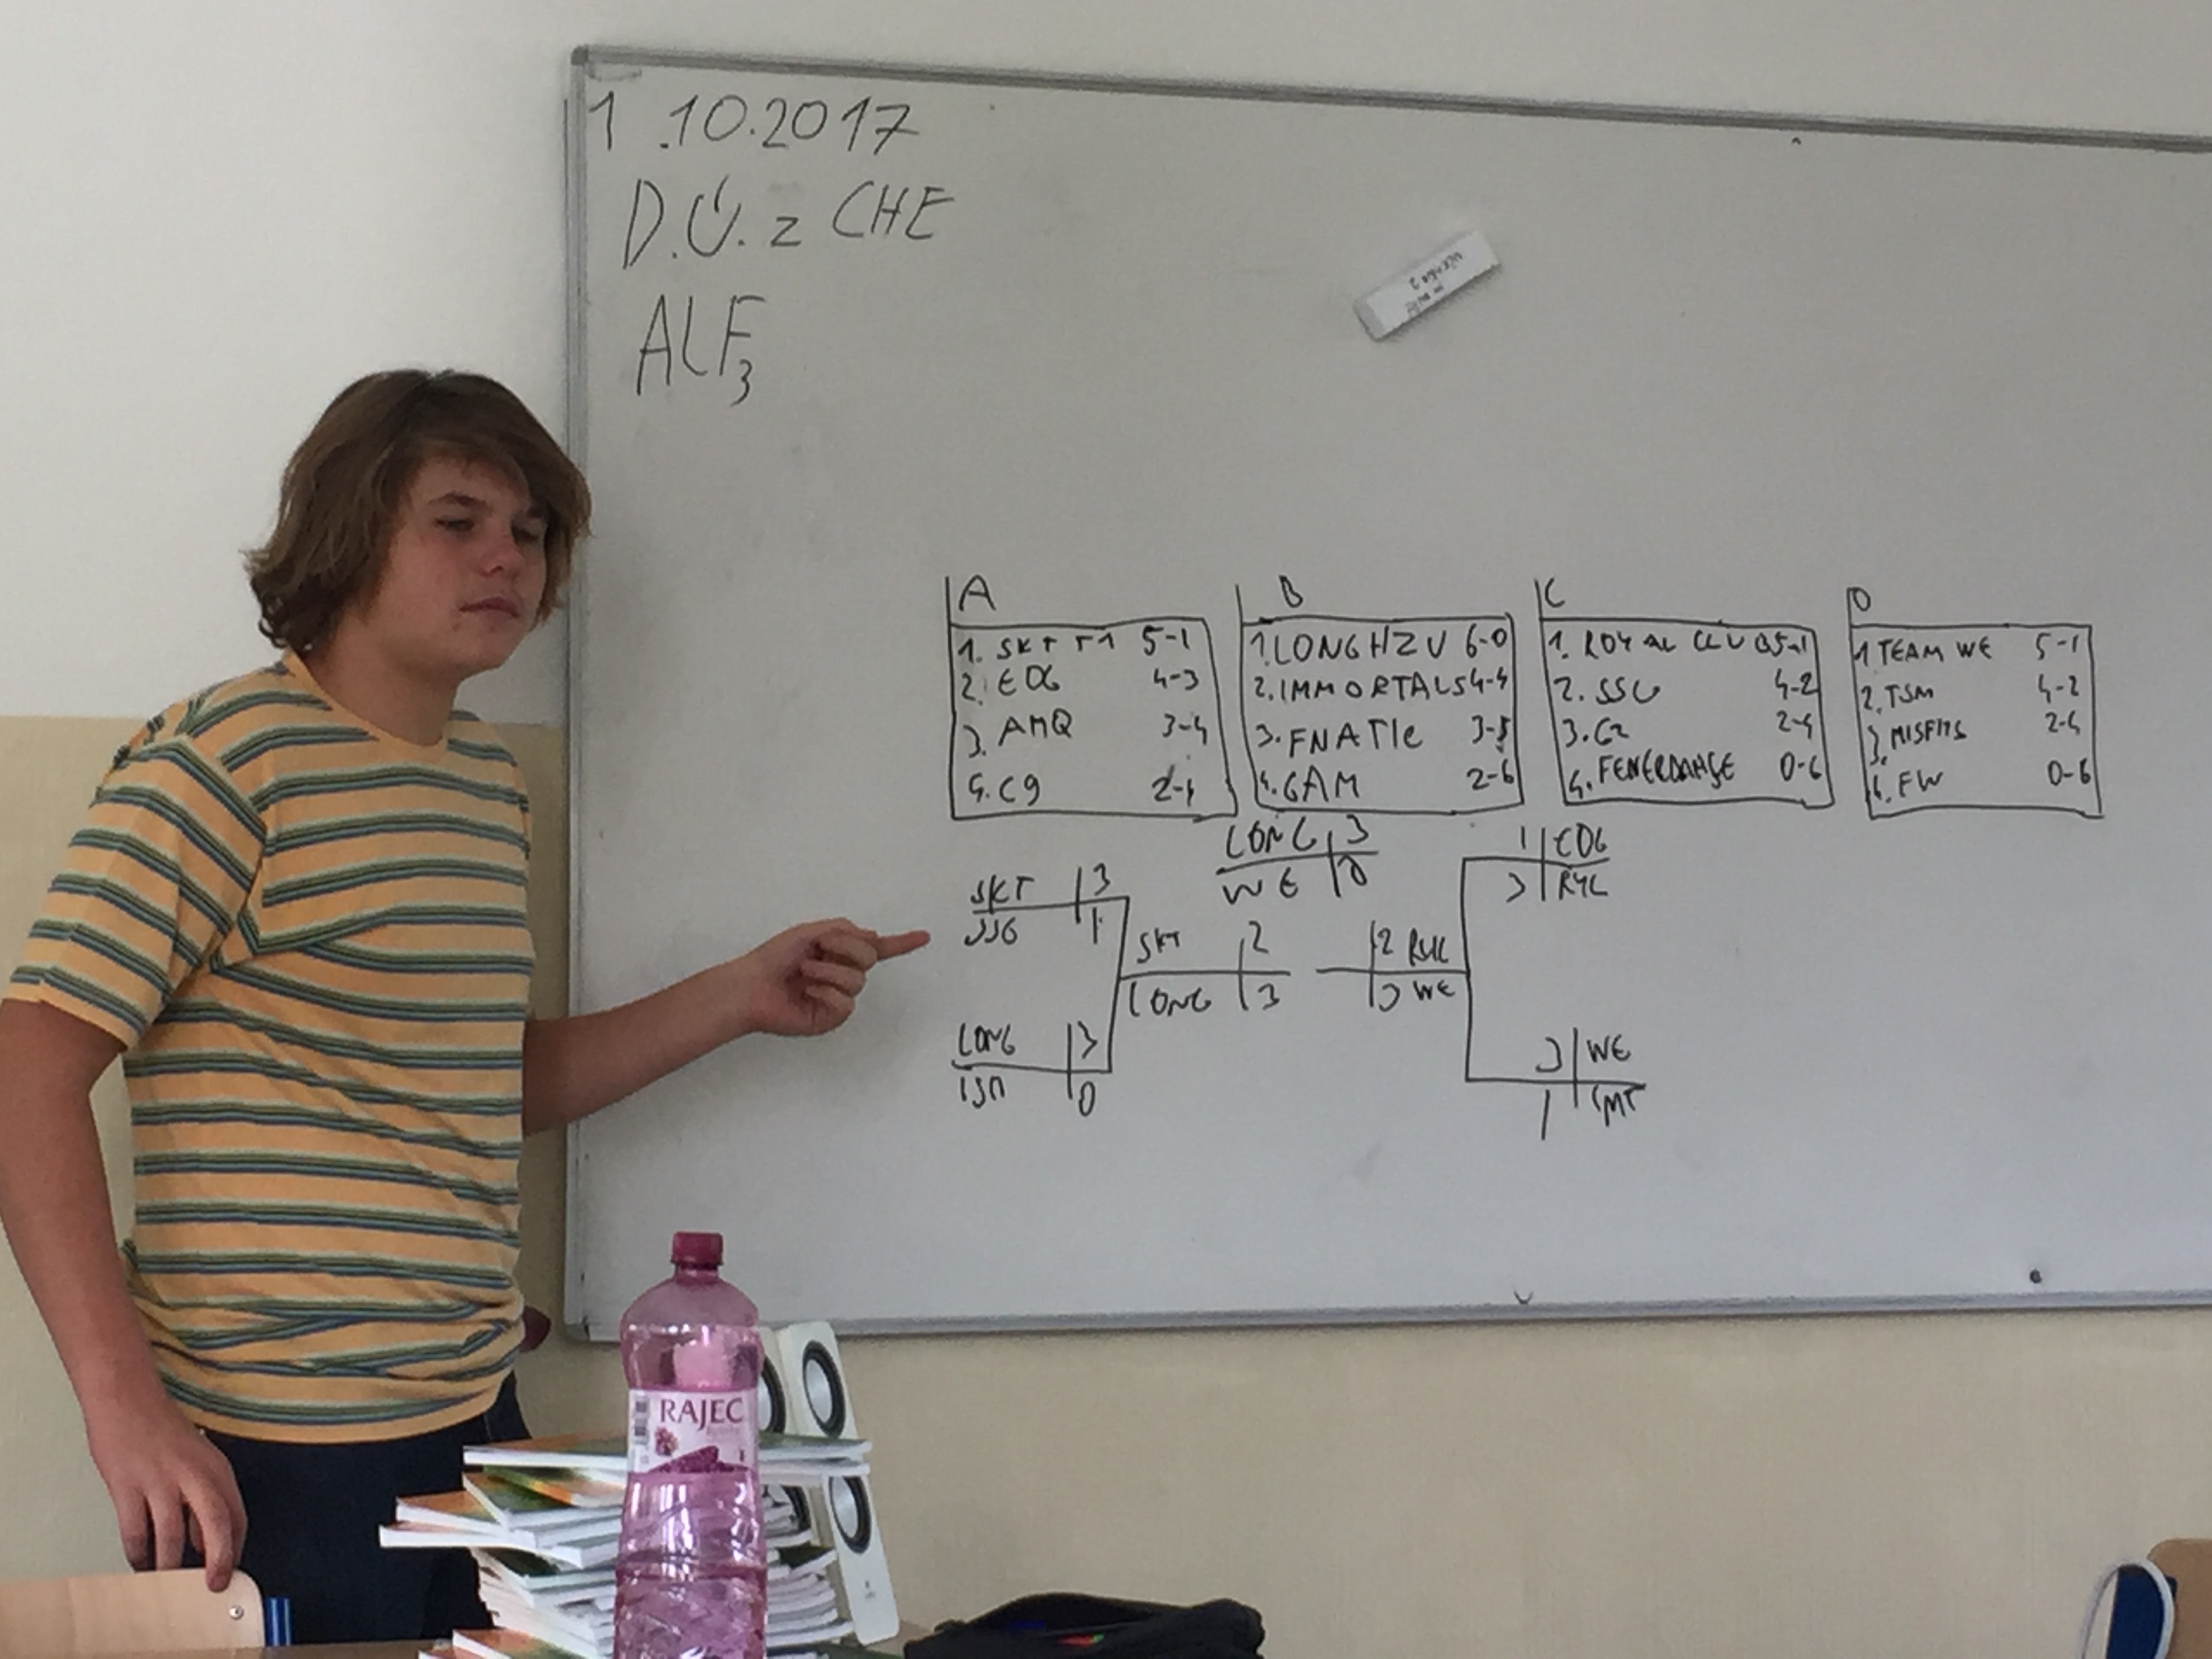 1 .10.2017
D.Ú. z CHE
ALF₃
A
1. SKT T1 5-1
2. EDG 4-3
3. AHQ 3-4
4. C9 2-4
B
1. LONGHZU 6-0
2. IMMORTALS 4-4
3. FNATIC 3-5
4. GAM 2-6
C
1. ROYAL CLUB 5-1
2. SSG 4-2
3. G2 2-4
4. FENERBAHÇE 0-6
D
1 TEAM WE 5-1
2. TSM 4-2
3. MISFITS 2-4
4. FW 0-6
LONG 3
WE 0
SKT 3
SSG 1
SKT 2
LONG 3
LONG 3
TSM 0
1 EDG
3 RYL
2 RYL
3 WE
3 WE
1 IMT
RAJEC